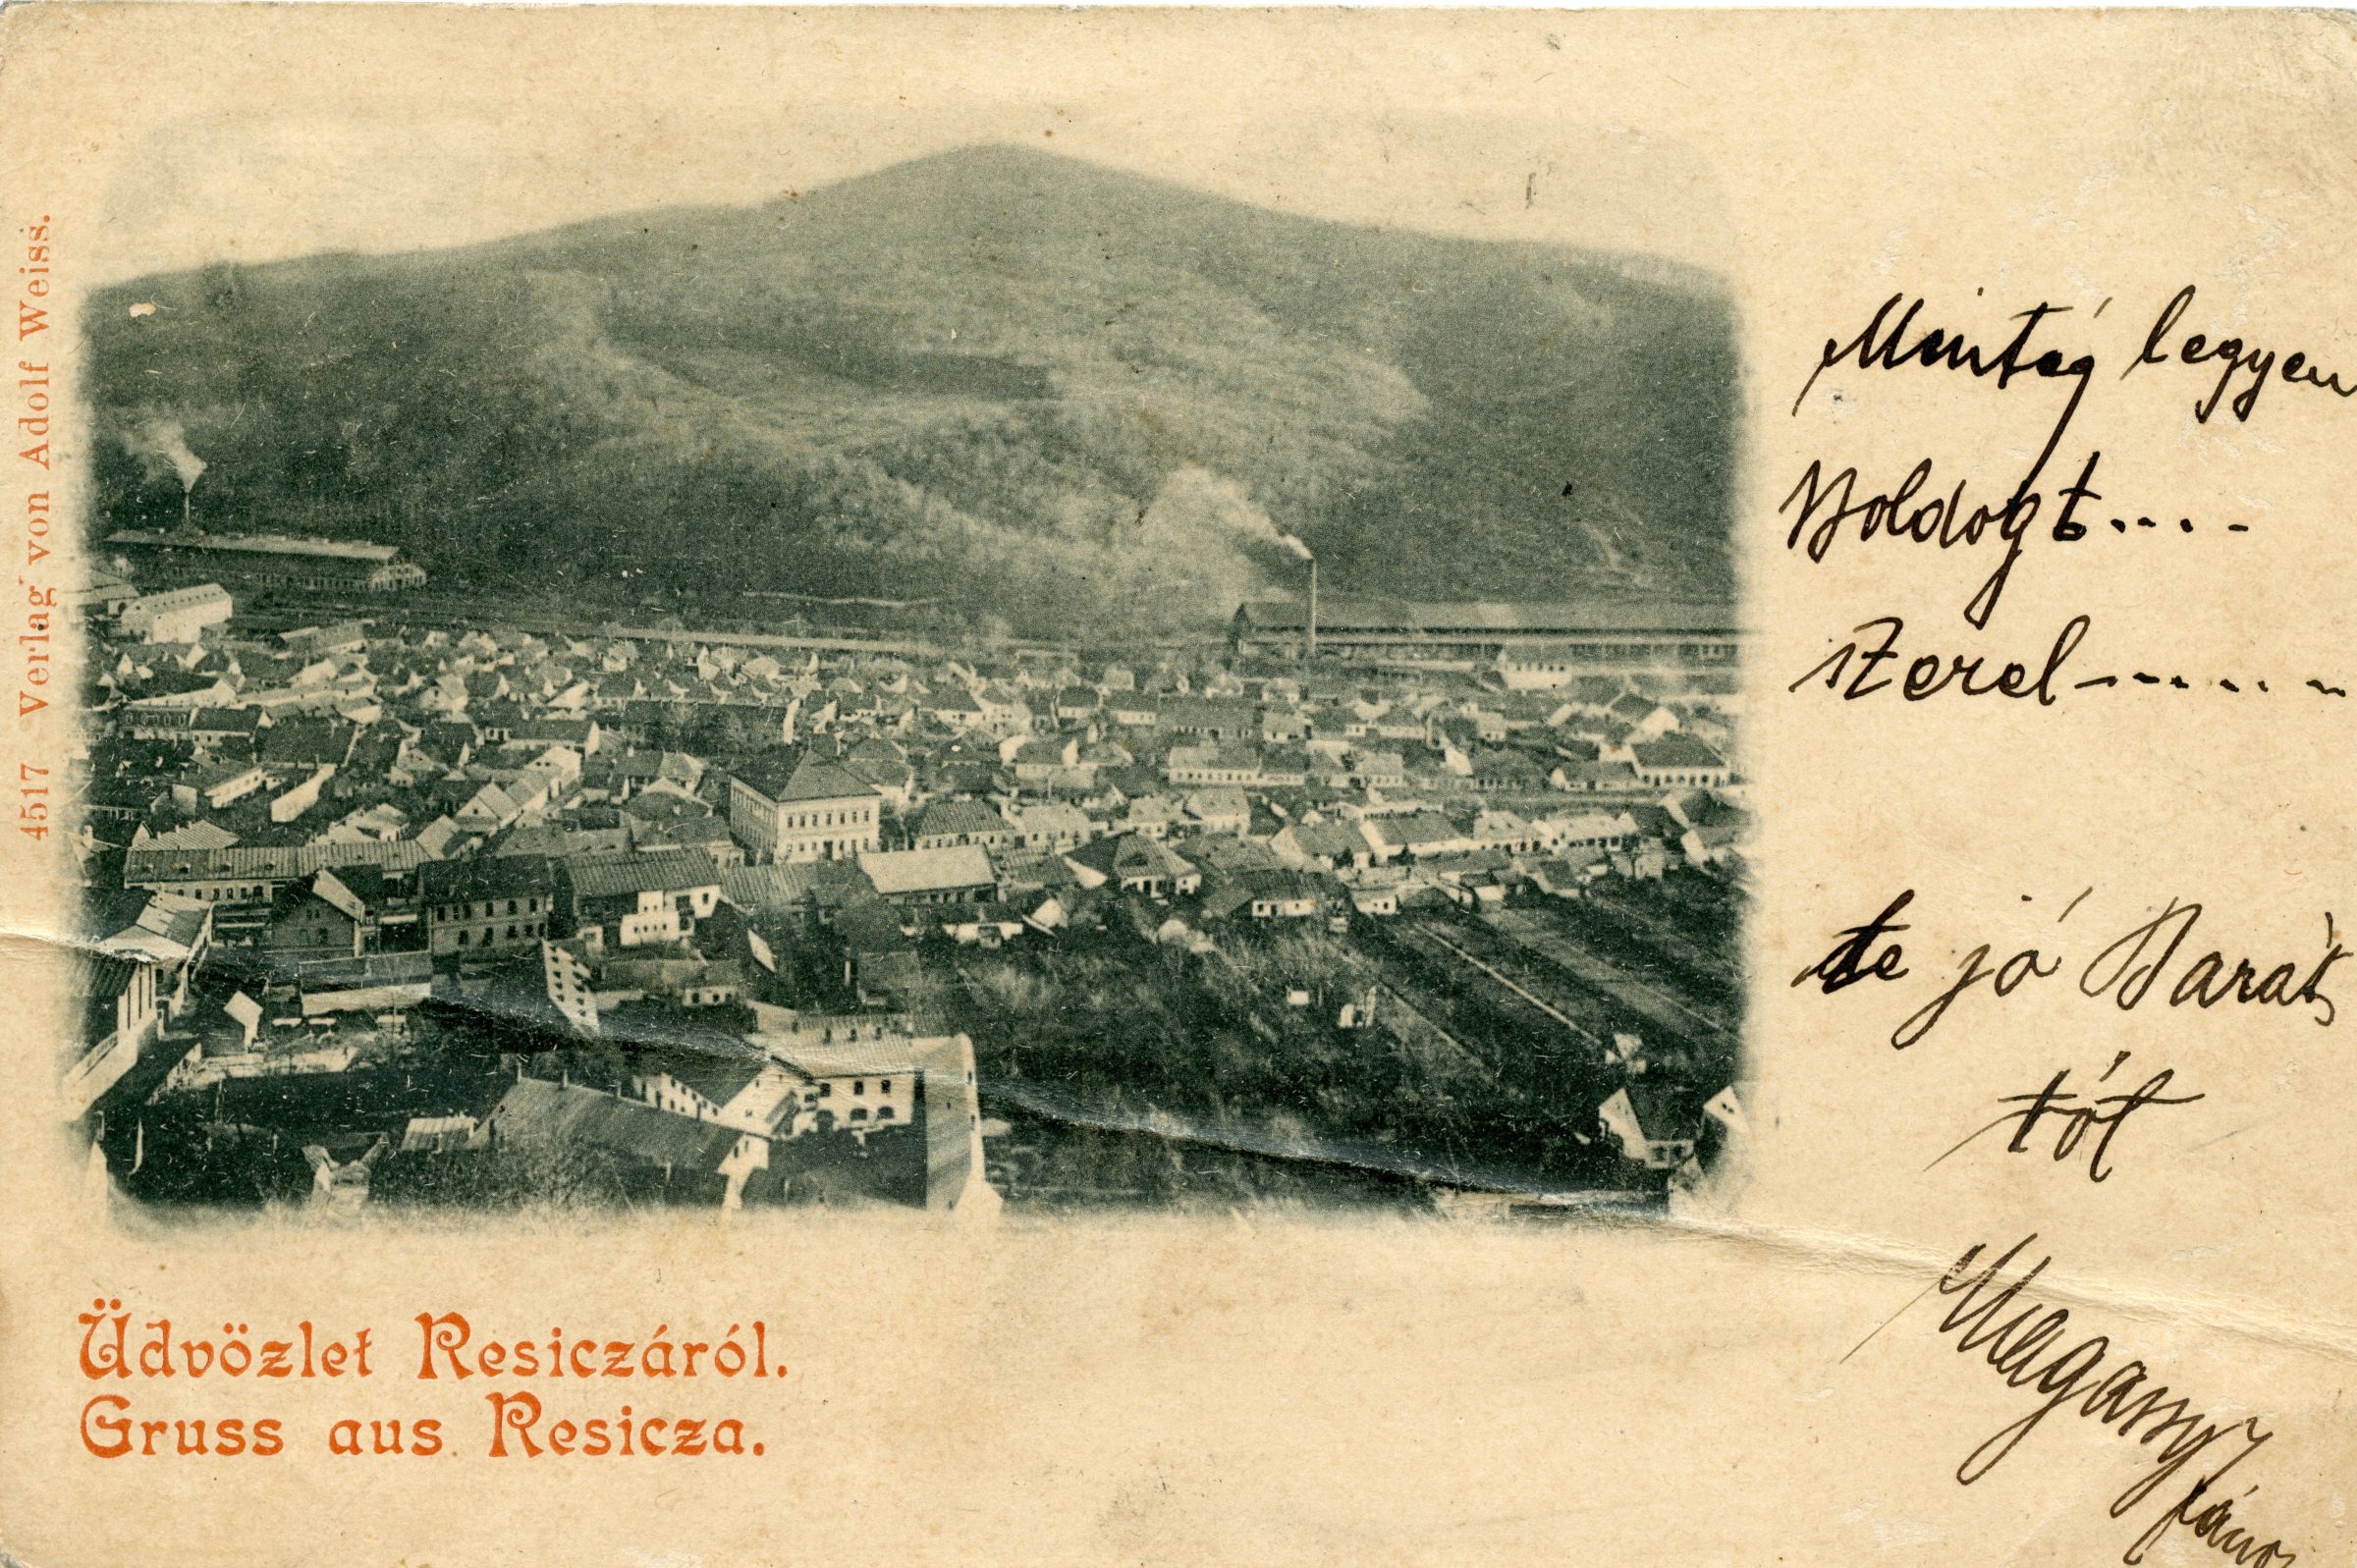 4517 Verlag von Adolf Weiss.
legyen
Boldogt....
szerel-......
te jó Barát
tól
Üdvözlet Resiczáról.
Gruss aus Resicza.